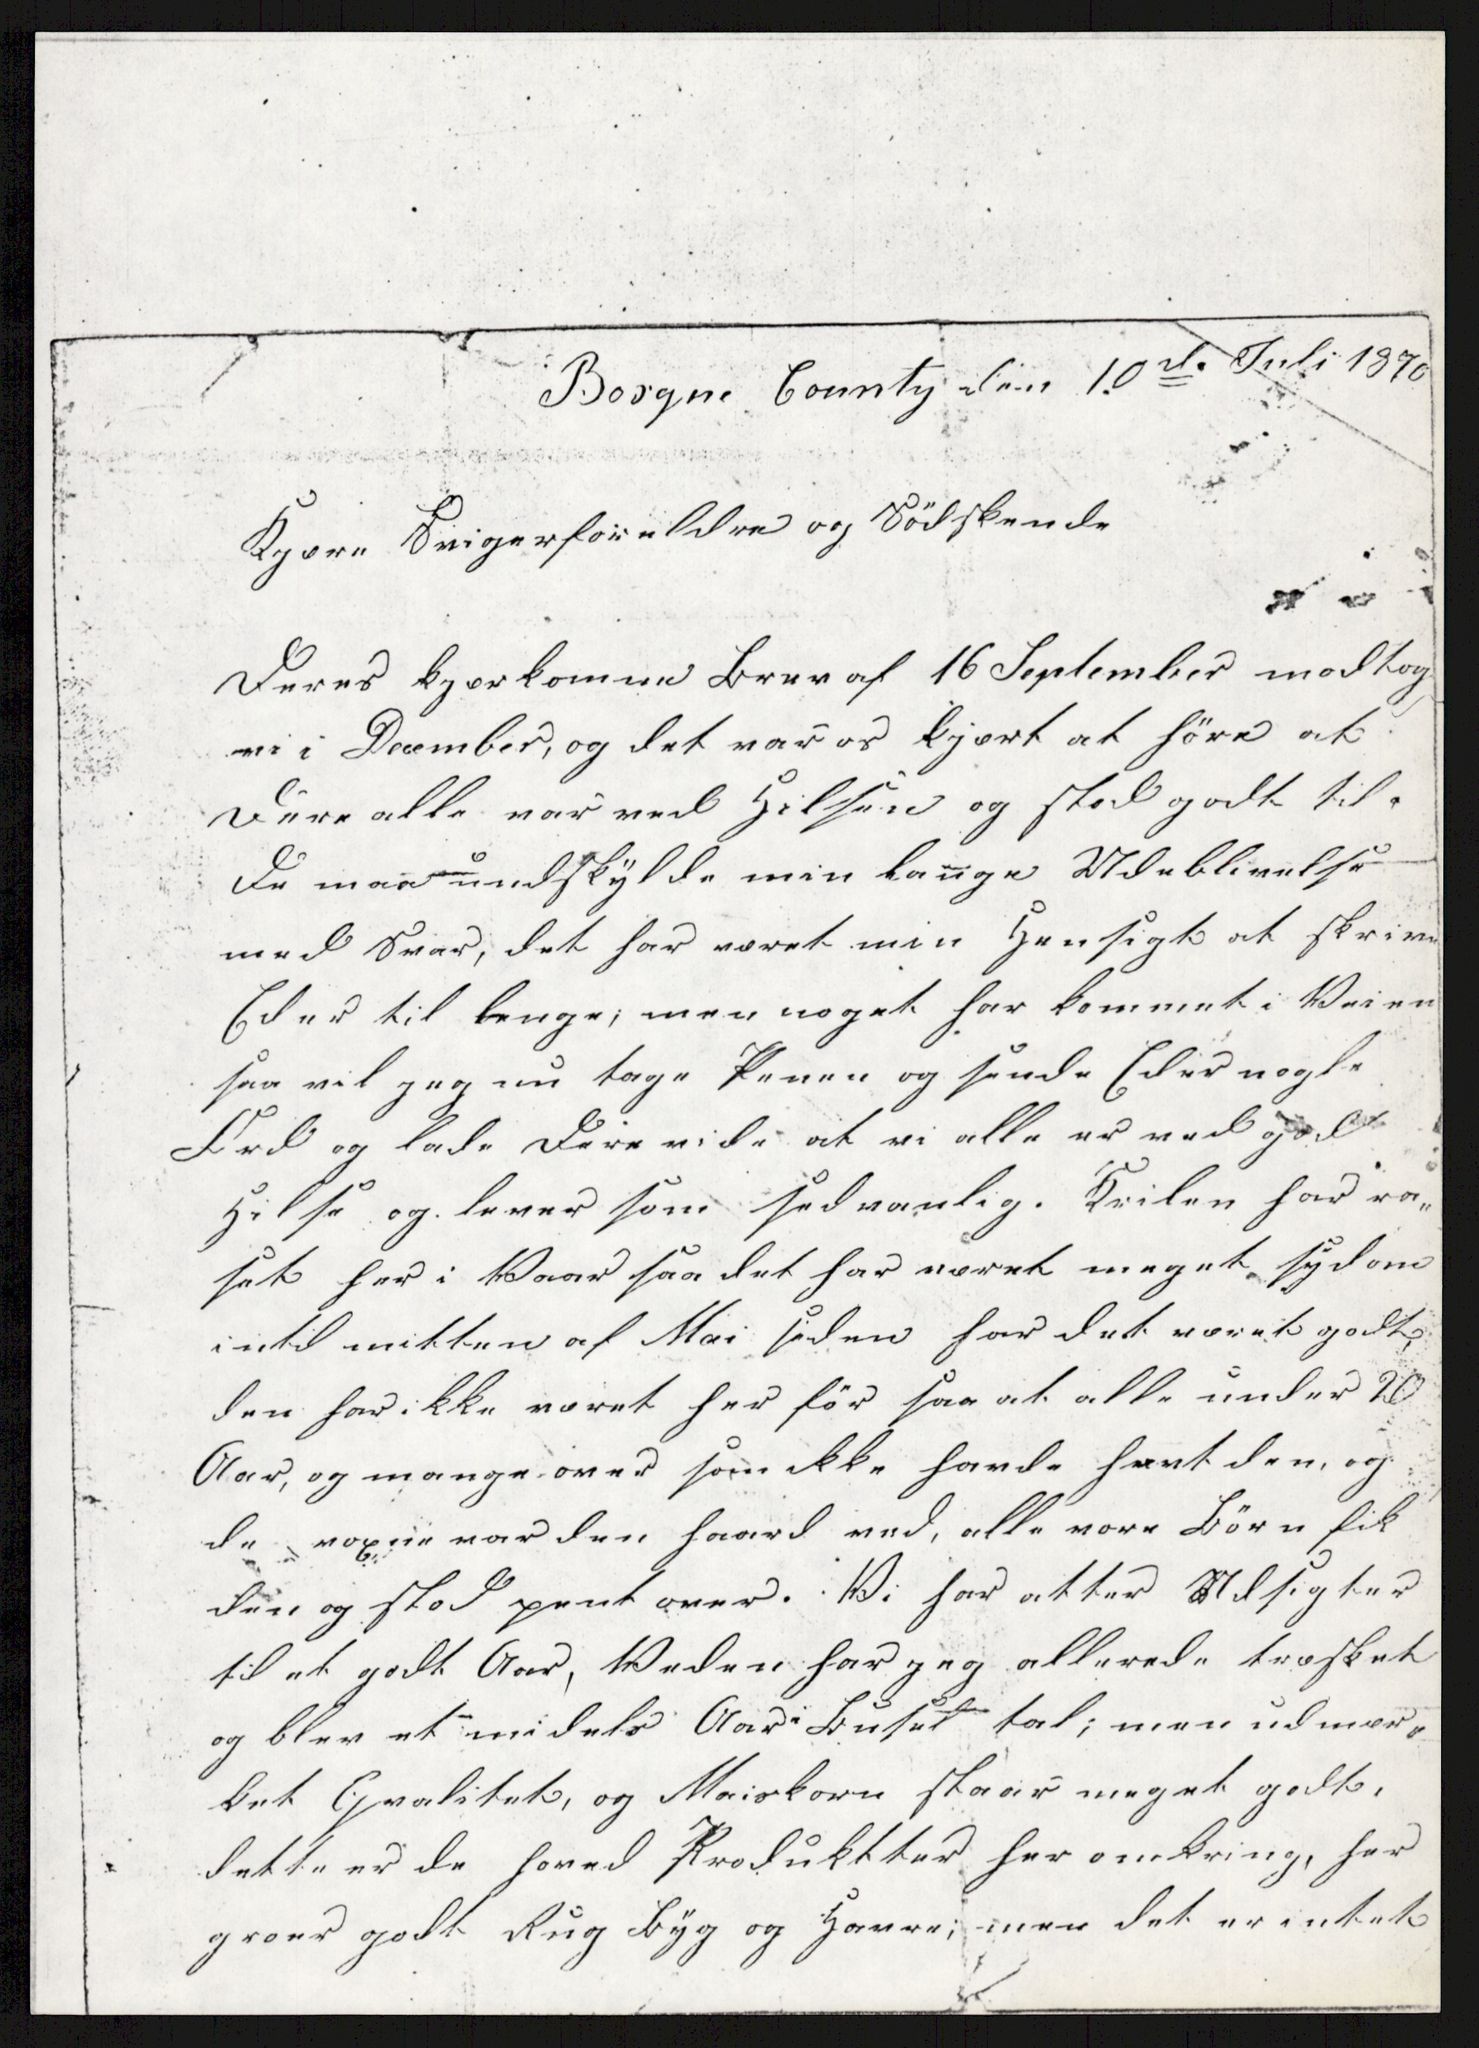 Bosque County den 10d. Juli 1870
Kjære Svigerforeldre og Södskende
Deres kjærkomne Brev af 16 September modtog
vi i December, og det var os kjært at höre at
Dere alle var ved Hilsen og stod godt til.
De maa undskylde min lange Udeblivelse
med Svar, det har været min Hensigt at skrive
Eder til lenge; men noget har kommet i Veien
saa vil jeg nu tage Penen og sende Eder nogle
Ord og lade Dere vide at vi alle er ved god
Hilse og lever som sedvanlig. Krilen har ra-
set her i Vaar saa det har været meget sydom
intil mitten af Mai siden har det været godt,
den har ikke været her för saa at alle under 20
Aar, og mange over som ikke havde havt den, og
de voxne var den haard ved, alle vore Börn fik
den og stod pent over. Vi har atter Udsigter
til et godt Aar, Veden har jeg allerede træsket
og blev et midels Aar i Busel tal; men udmær-
ket Qvalitet, og Maiskorn staar meget godt,
dette er de hoved Produktter her omkring, her
groer godt Rug Byg og Havre; men det er intet